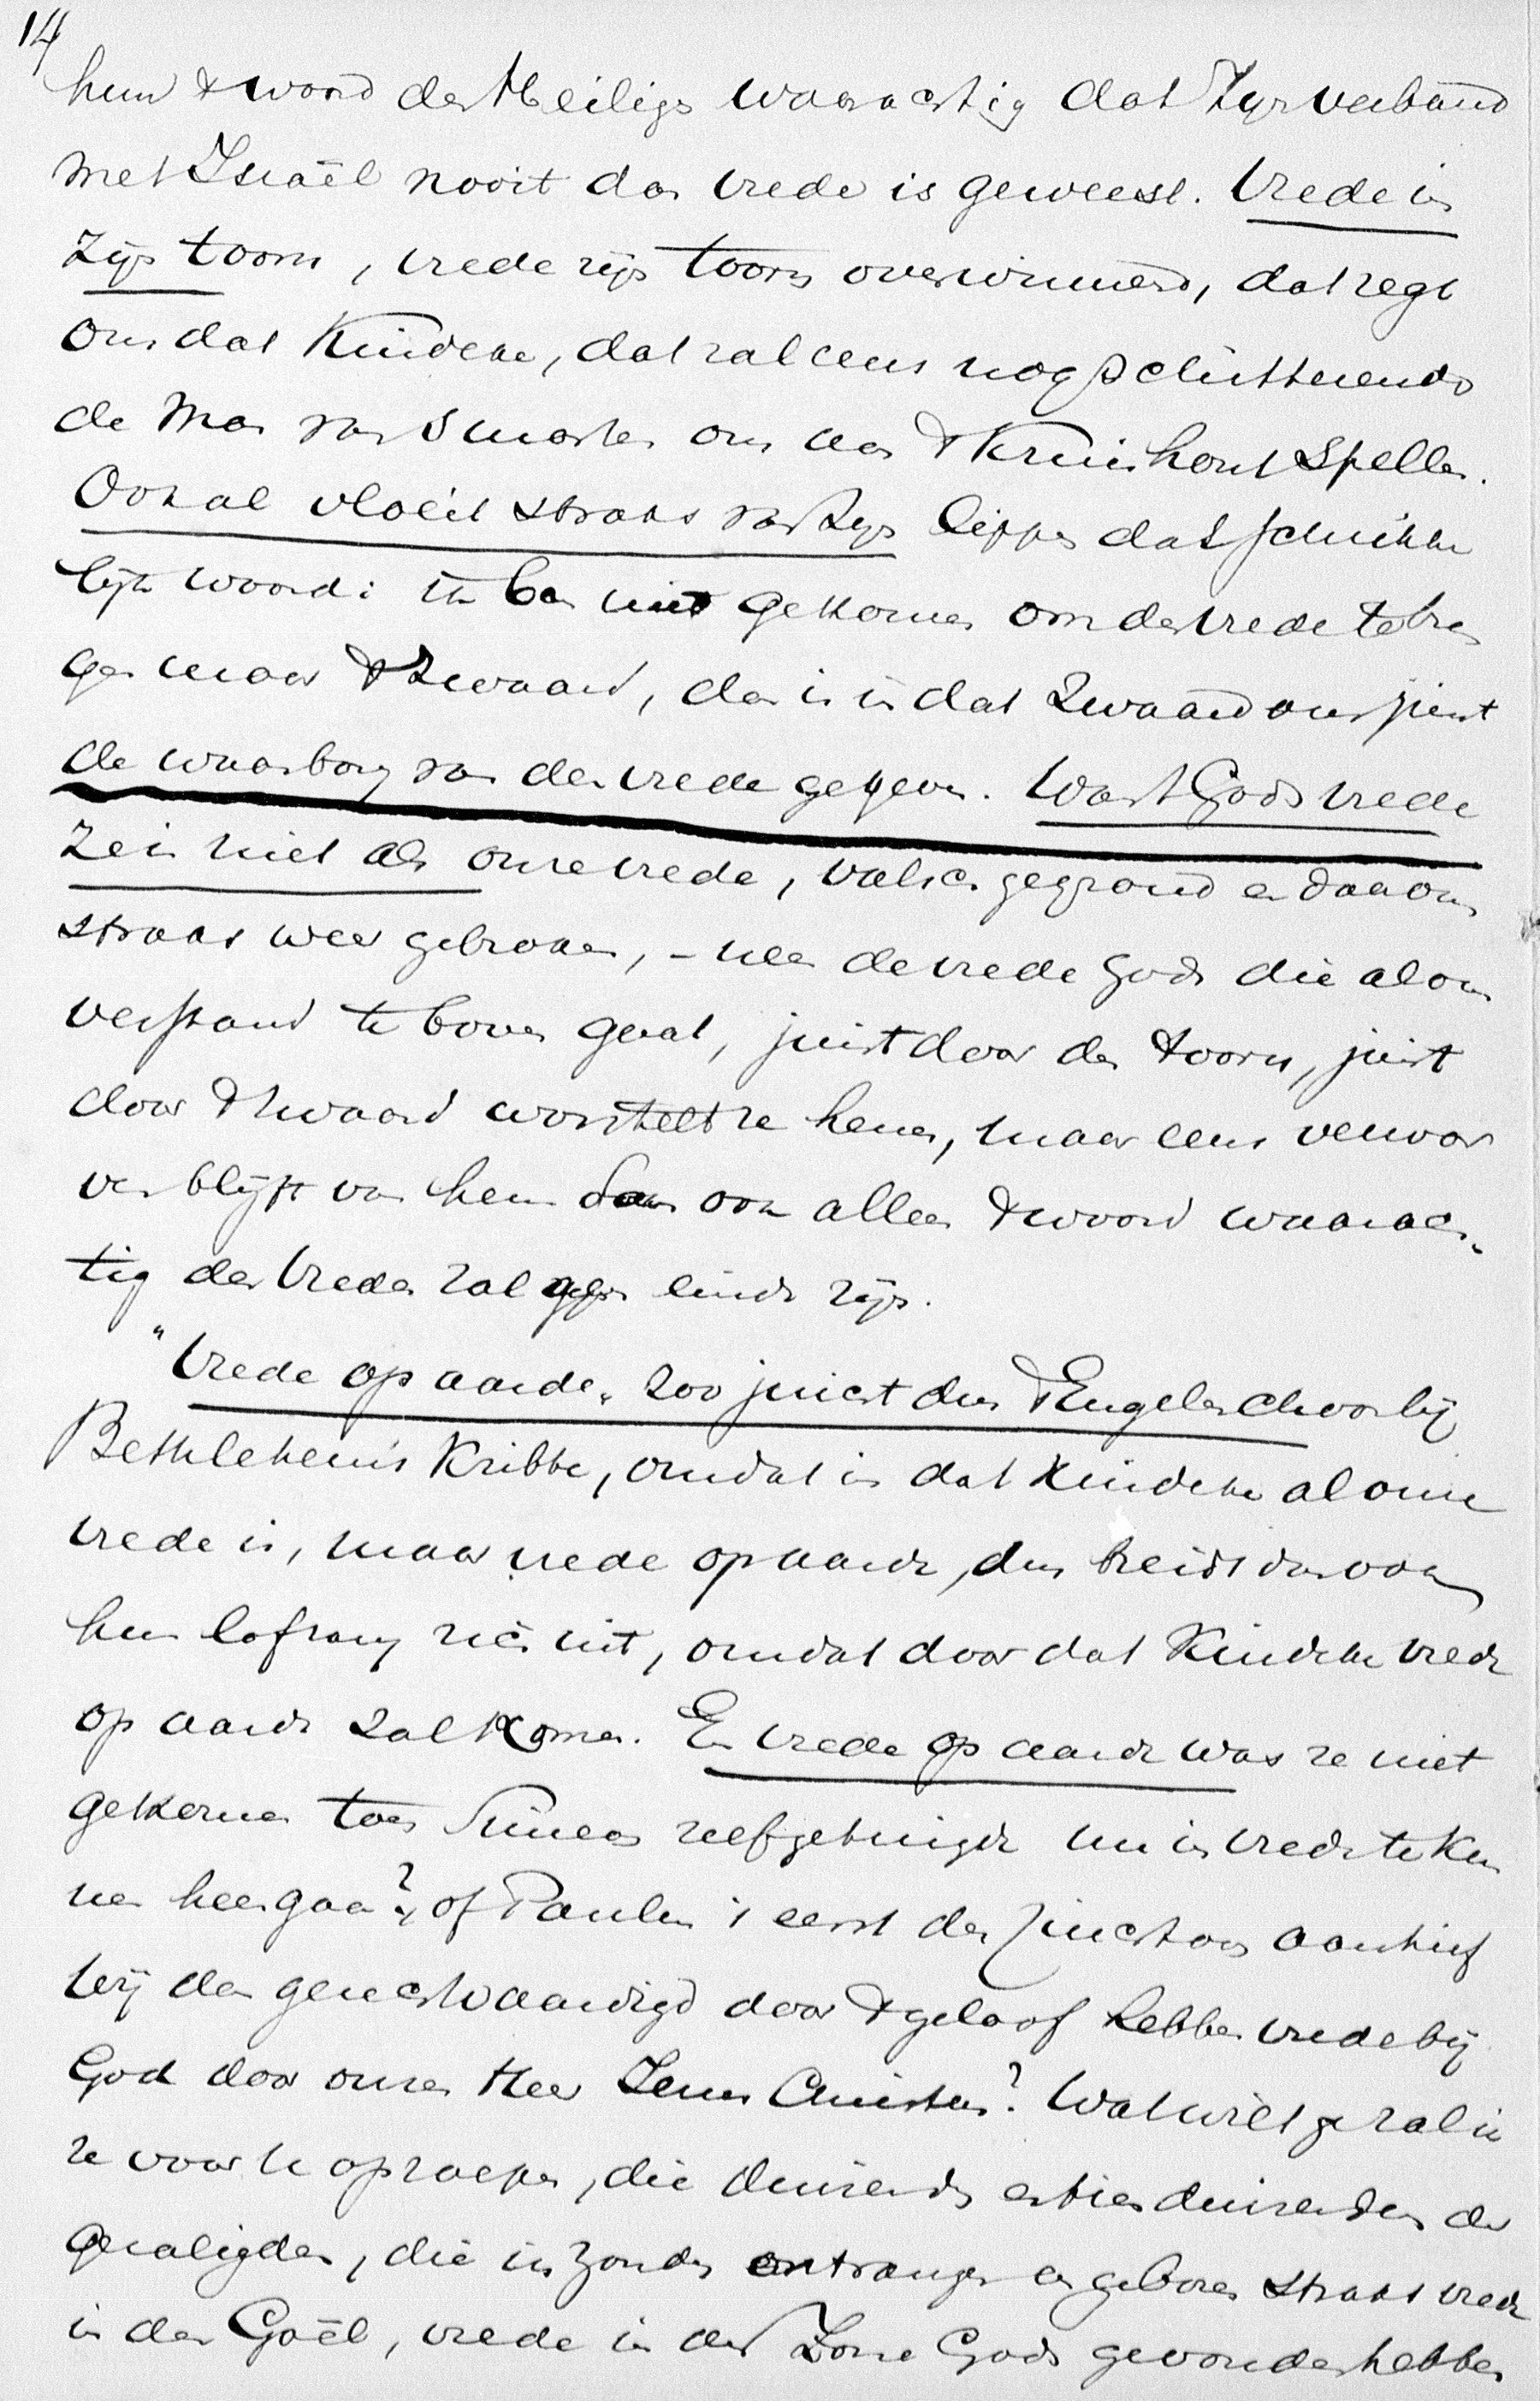 14
hun 't woord des Heiligen waarachtig dat Zijn verbond
met Israël nooit dan vrede is geweest. Vrede in
Zijn toorn, vrede zijn toorn overwinnend, dat zegt
ons dat Kindeke, dat zal eens nog schitterender
de Man van Smarten ons aan 't Kruishout spellen.
Ook al vloeit straks van Zijn lippen dat schrikke
lijk woord: ik ben niet gekomen om den vrede te bren
gen maar 't zwaard, dan is in dat zwaard ons juist
de waarborg van den vrede gegeven. Want Gods vrede
ze is niet als onze vrede, valsch gegrond en daarom
straks weer gebroken, – neen de vrede Gods die al ons
verstand te boven gaat, juist door den toorn, juist
door 't zwaard worstelt ze henen, maar eens verwor
ven blijft van hem dan ook alleen 't woord waarach-
tig des Vredes zal geen einde zijn.
"Vrede op aarde" zoo juicht dus 't Engelenchoor bij
Bethlehem's Kribbe, omdat in dat Kindeke al onze
vrede is, maar vrede op aarde, dus breidt dan ook
hun lofzang zich uit, omdat door dat Kindeke vrede
op aarde zal komen. En vrede op aarde was ze niet
gekomen toen Simeon zelf getuigde nu in vrede te kun
nen heengaan?, of Paulus 't eerst den juichtoon aanhief
wij dan gerechtvaardigd door 't geloof hebben vrede bij
God door onzen Heer Jezus Christus? Wat wilt ge zal ik
ze voor u oproepen, die duizenden en tienduizenden der
gezaligden, die in zonden ontvangen en geboren straks vrede
in den Goël, vrede in den Zone Gods gevonden hebben